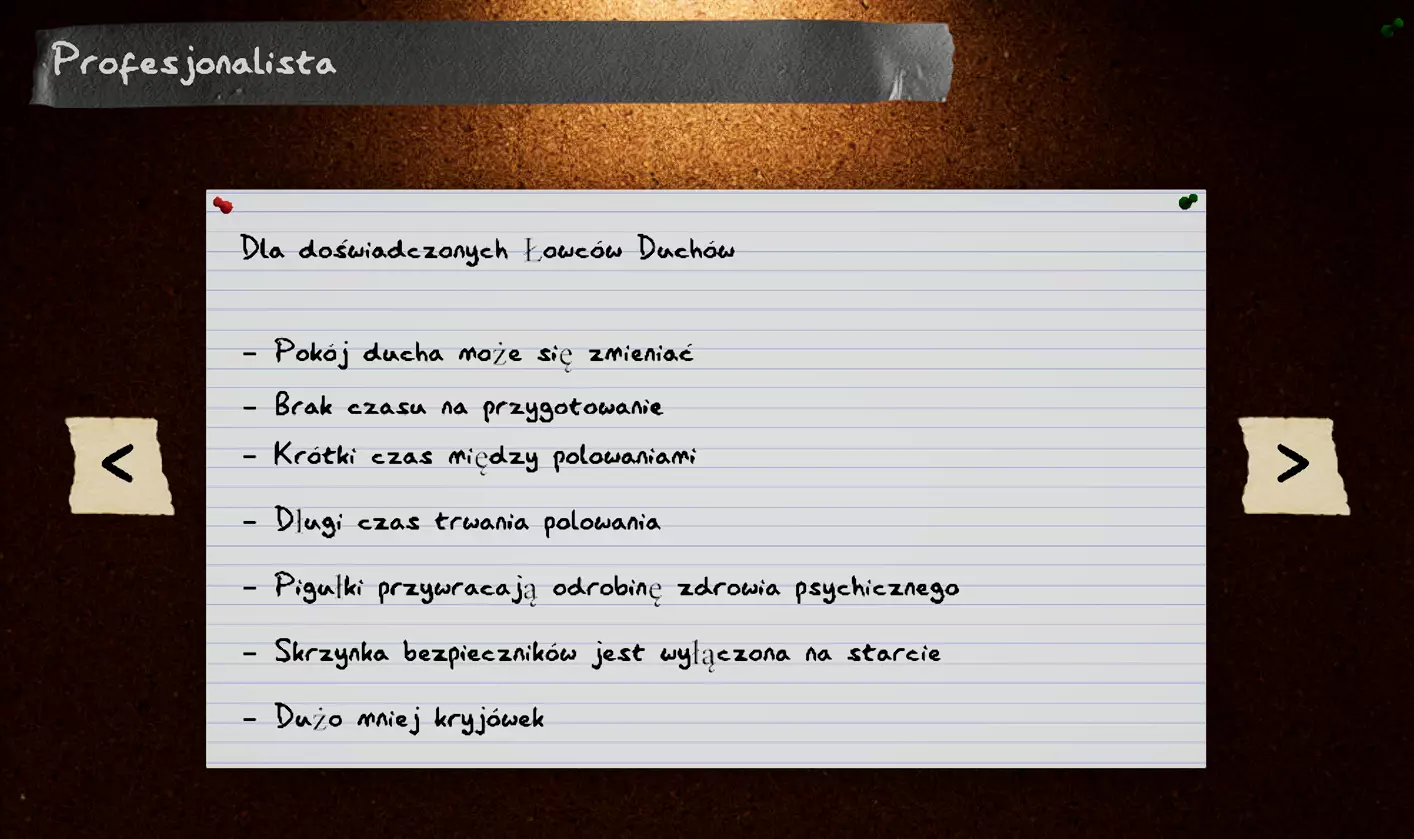 Profesjonalista
Dla doświadczonych Łowców Duchów
- Pokój ducha może się zmieniać
- Brak czasu na przygotowanie
- Krótki czas między polowaniami
<
>
- Długi czas trwania polowania
- Pigułki przywracają odrobinę zdrowia psychicznego
- Skrzynka bezpieczników jest wyłączona na starcie
- Dużo mniej kryjówek